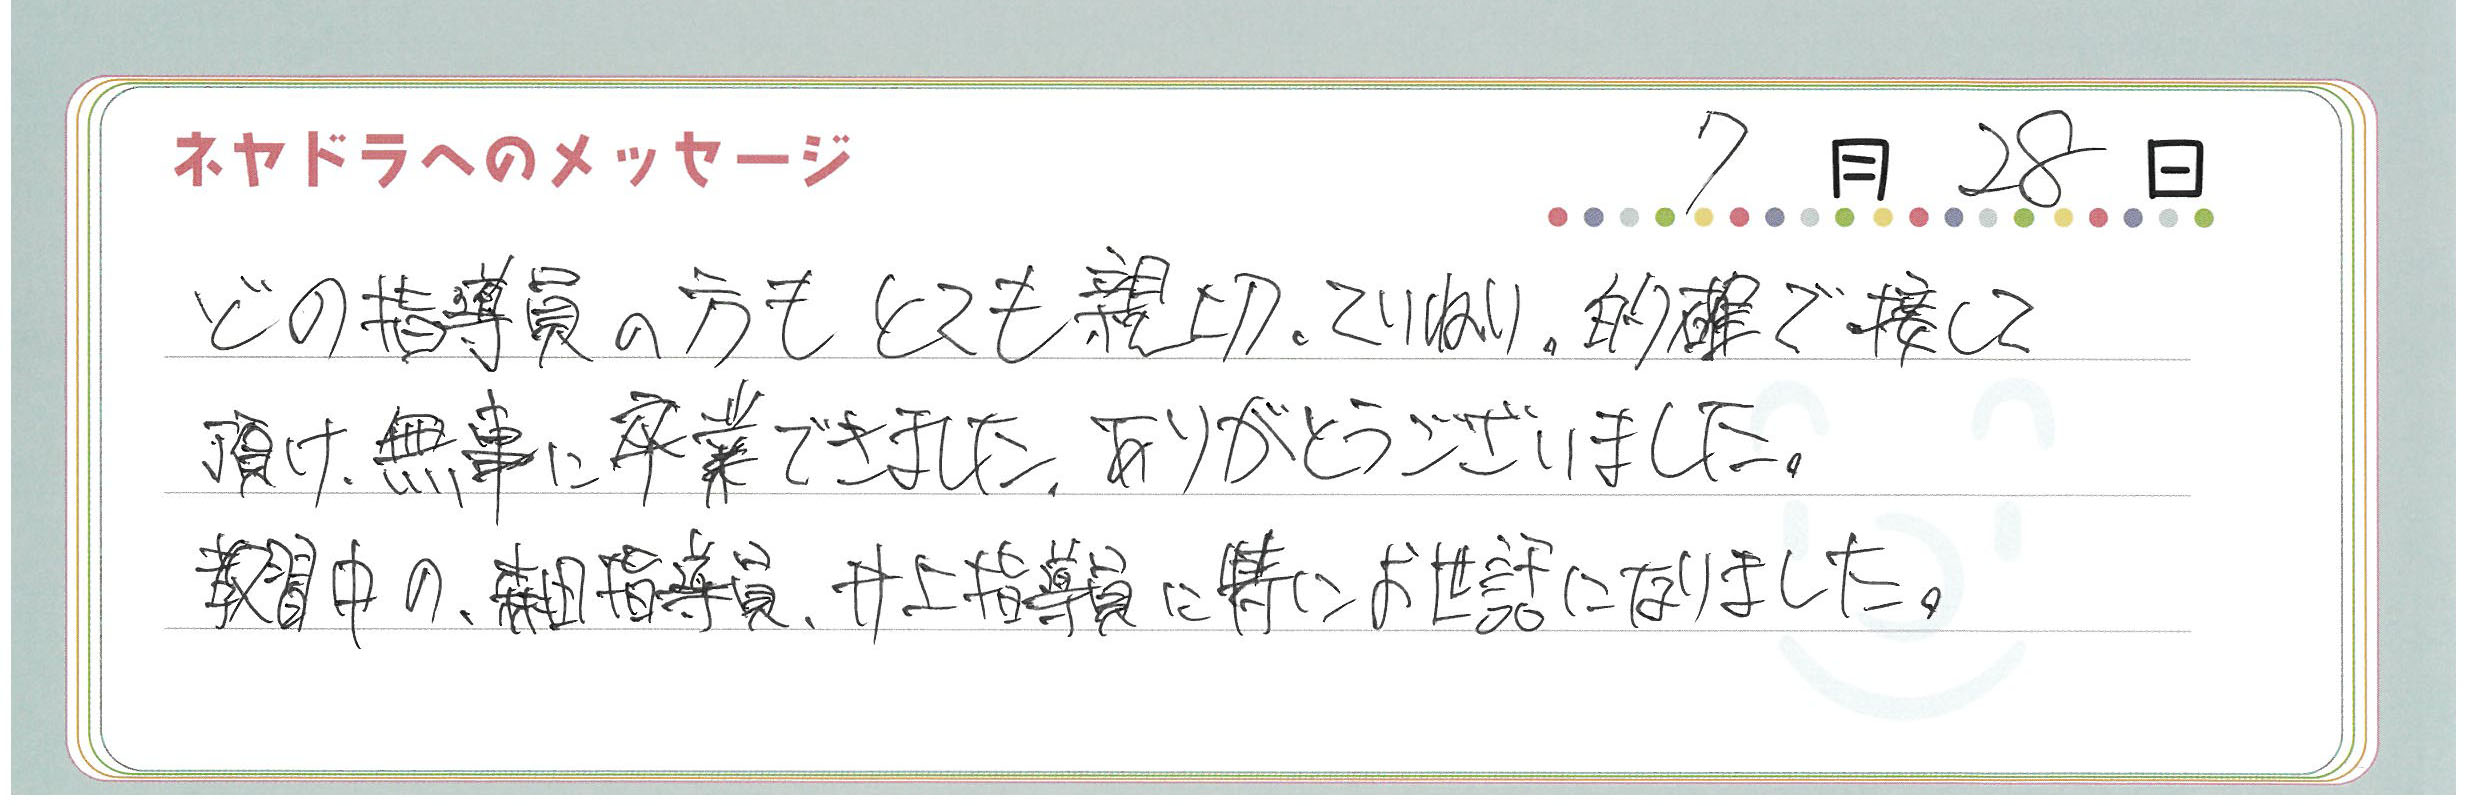 ネヤドラへのメッセージ
7月28日
どの指導員の方もとても親切、ていねい、的確で接して
頂け、無事に卒業できました、ありがとうございました。
教習中の、森田指導員、井上指導員に特にお世話になりました。